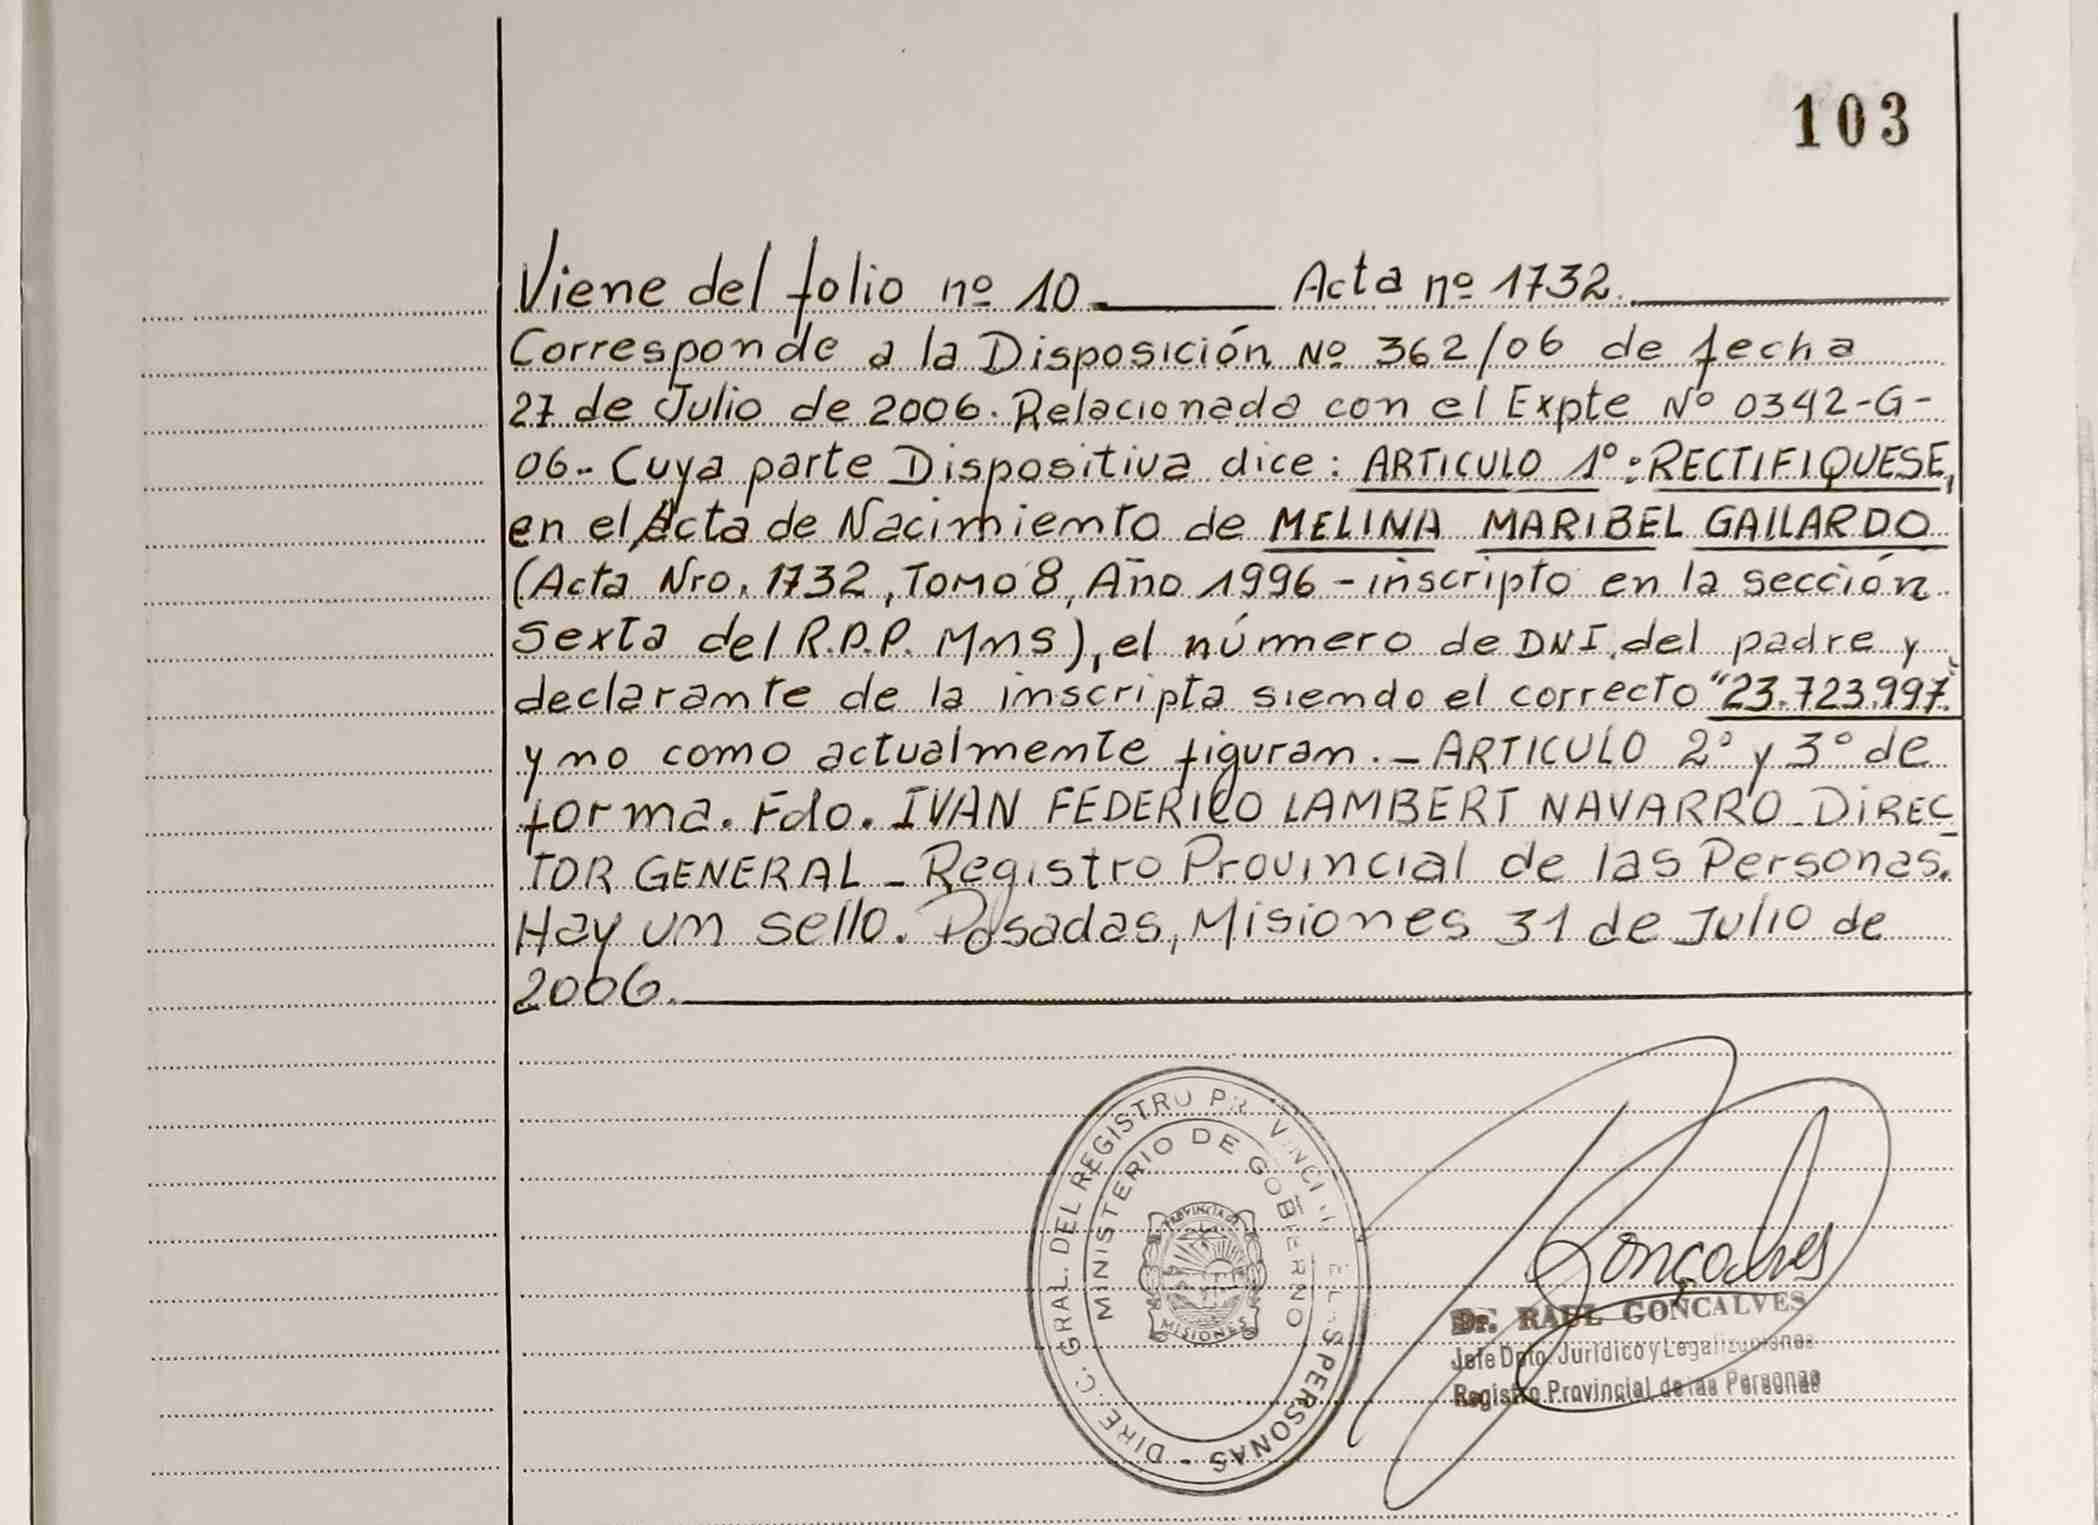 103
Viene del folio nº 10. Acta nº 1732.
Corresponde a la Disposición Nº 362/06 de fecha
27 de Julio de 2006. Relacionada con el Expte Nº 0342-G-
06.- Cuya parte Dispositiva dice: ARTICULO 1º: RECTIFIQUESE,
en el Acta de Nacimiento de MELINA MARIBEL GALLARDO
(Acta Nro. 1732, Tomo 8, Año 1996 - inscripto en la sección
Sexta del R.P.P. Mns), el número de DNI. del padre y
declarante de la inscripta siendo el correcto "23.723.997"
y no como actualmente figuran. - ARTICULO 2º y 3º de
forma. Fdo. IVAN FEDERICO LAMBERT NAVARRO - DIREC
TOR GENERAL - Registro Provincial de las Personas.
Hay un sello. Posadas, Misiones 31 de Julio de
2006.
GRAL. DEL REGISTRO PERSONAS - DIREC.
MINISTERIO DE GOBIERNO
PROVINCIA DE
MISIONES
Gonçalves
Dr. RAUL GONCALVES
Jefe Dpto. Jurídico y Legalizaciones
Registro Provincial de las Personas